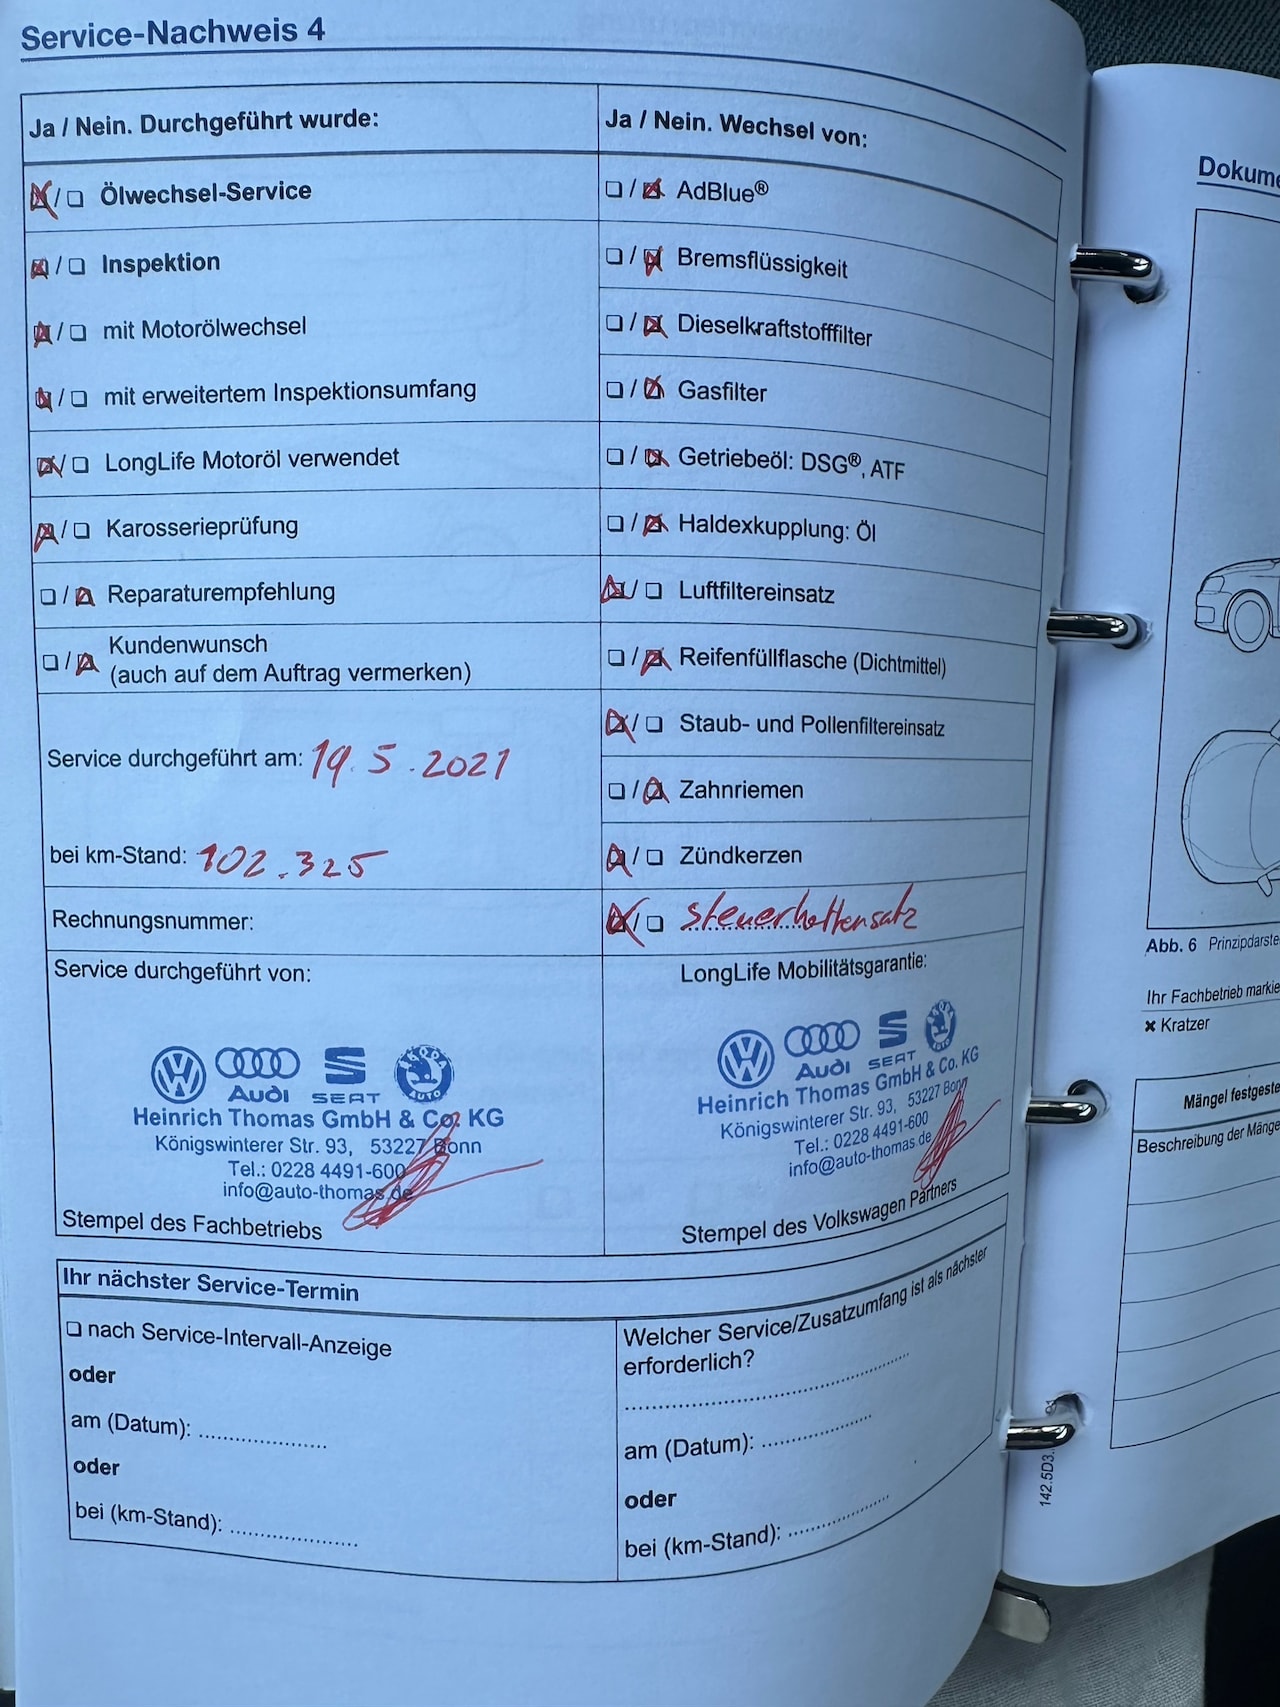 Service-Nachweis 4
Ja / Nein. Durchgeführt wurde:
Ölwechsel-Service
Inspektion
mit Motorölwechsel
mit erweitertem Inspektionsumfang
LongLife Motoröl verwendet
Karosserieprüfung
Reparaturempfehlung
Kundenwunsch
(auch auf dem Auftrag vermerken)
Service durchgeführt am: 19.5.2021
bei km-Stand: 102.325
Rechnungsnummer:
Service durchgeführt von:
Audi SEAT ŠKODA AUTO
Heinrich Thomas GmbH & Co. KG
Königswinterer Str. 93, 53227 Bonn
Tel.: 0228 4491-600
info@auto-thomas.de
Stempel des Fachbetriebs
Ja / Nein. Wechsel von:
AdBlue®
Bremsflüssigkeit
Dieselkraftstofffilter
Gasfilter
Getriebeöl: DSG®, ATF
Haldexkupplung: Öl
Luftfiltereinsatz
Reifenfüllflasche (Dichtmittel)
Staub- und Pollenfiltereinsatz
Zahnriemen
Zündkerzen
Steuerkettensatz
LongLife Mobilitätsgarantie:
Audi SEAT ŠKODA AUTO
Heinrich Thomas GmbH & Co. KG
Königswinterer Str. 93, 53227 Bonn
Tel.: 0228 4491-600
info@auto-thomas.de
Stempel des Volkswagen Partners
Ihr nächster Service-Termin
nach Service-Intervall-Anzeige
oder
am (Datum):
oder
bei (km-Stand):
Welcher Service/Zusatzumfang ist als nächster
erforderlich?
am (Datum):
oder
bei (km-Stand):
142.5D3.
Dokume
Abb. 6 Prinzipdarste
Ihr Fachbetrieb markie
Kratzer
Mängel festgeste
Beschreibung der Mänge